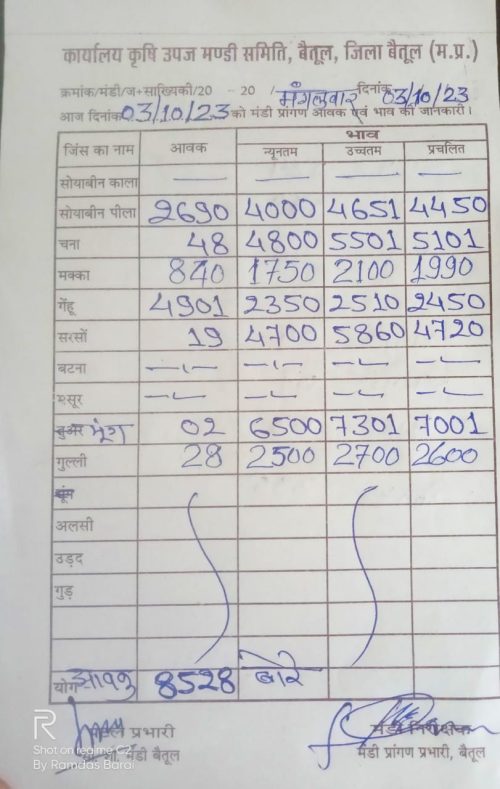 कार्यालय कृषि उपज मण्डी समिति, बैतूल, जिला बैतूल (म.प्र.)
क्रमांक/मंडी/ज+साख्यिकी/20 - 20 / मंगलवार दिनांक 03/10/23
आज दिनांक 03/10/23 को मंडी प्रांगण आवक एवं भाव की जानकारी।
जिंस का नाम आवक भाव
न्यूनतम उच्चतम प्रचलित
सोयाबीन काला — — — —
सोयाबीन पीला 2690 4000 4651 4450
चना 48 4800 5501 5101
मक्का 840 1750 2100 1990
गेंहू 4901 2350 2510 2450
सरसों 19 4700 5860 4720
बटना
मसूर
मूंग 02 6500 7301 7001
गुल्ली 28 2500 2700 2600
अलसी
उड़द
गुड़
योग आवक 8528 बोरे
प्रभारी मंडी निरीक्षक
मंडी बैतूल मंडी प्रांगण प्रभारी, बैतूल
R
Shot on realme C2
By Ramdas Barai